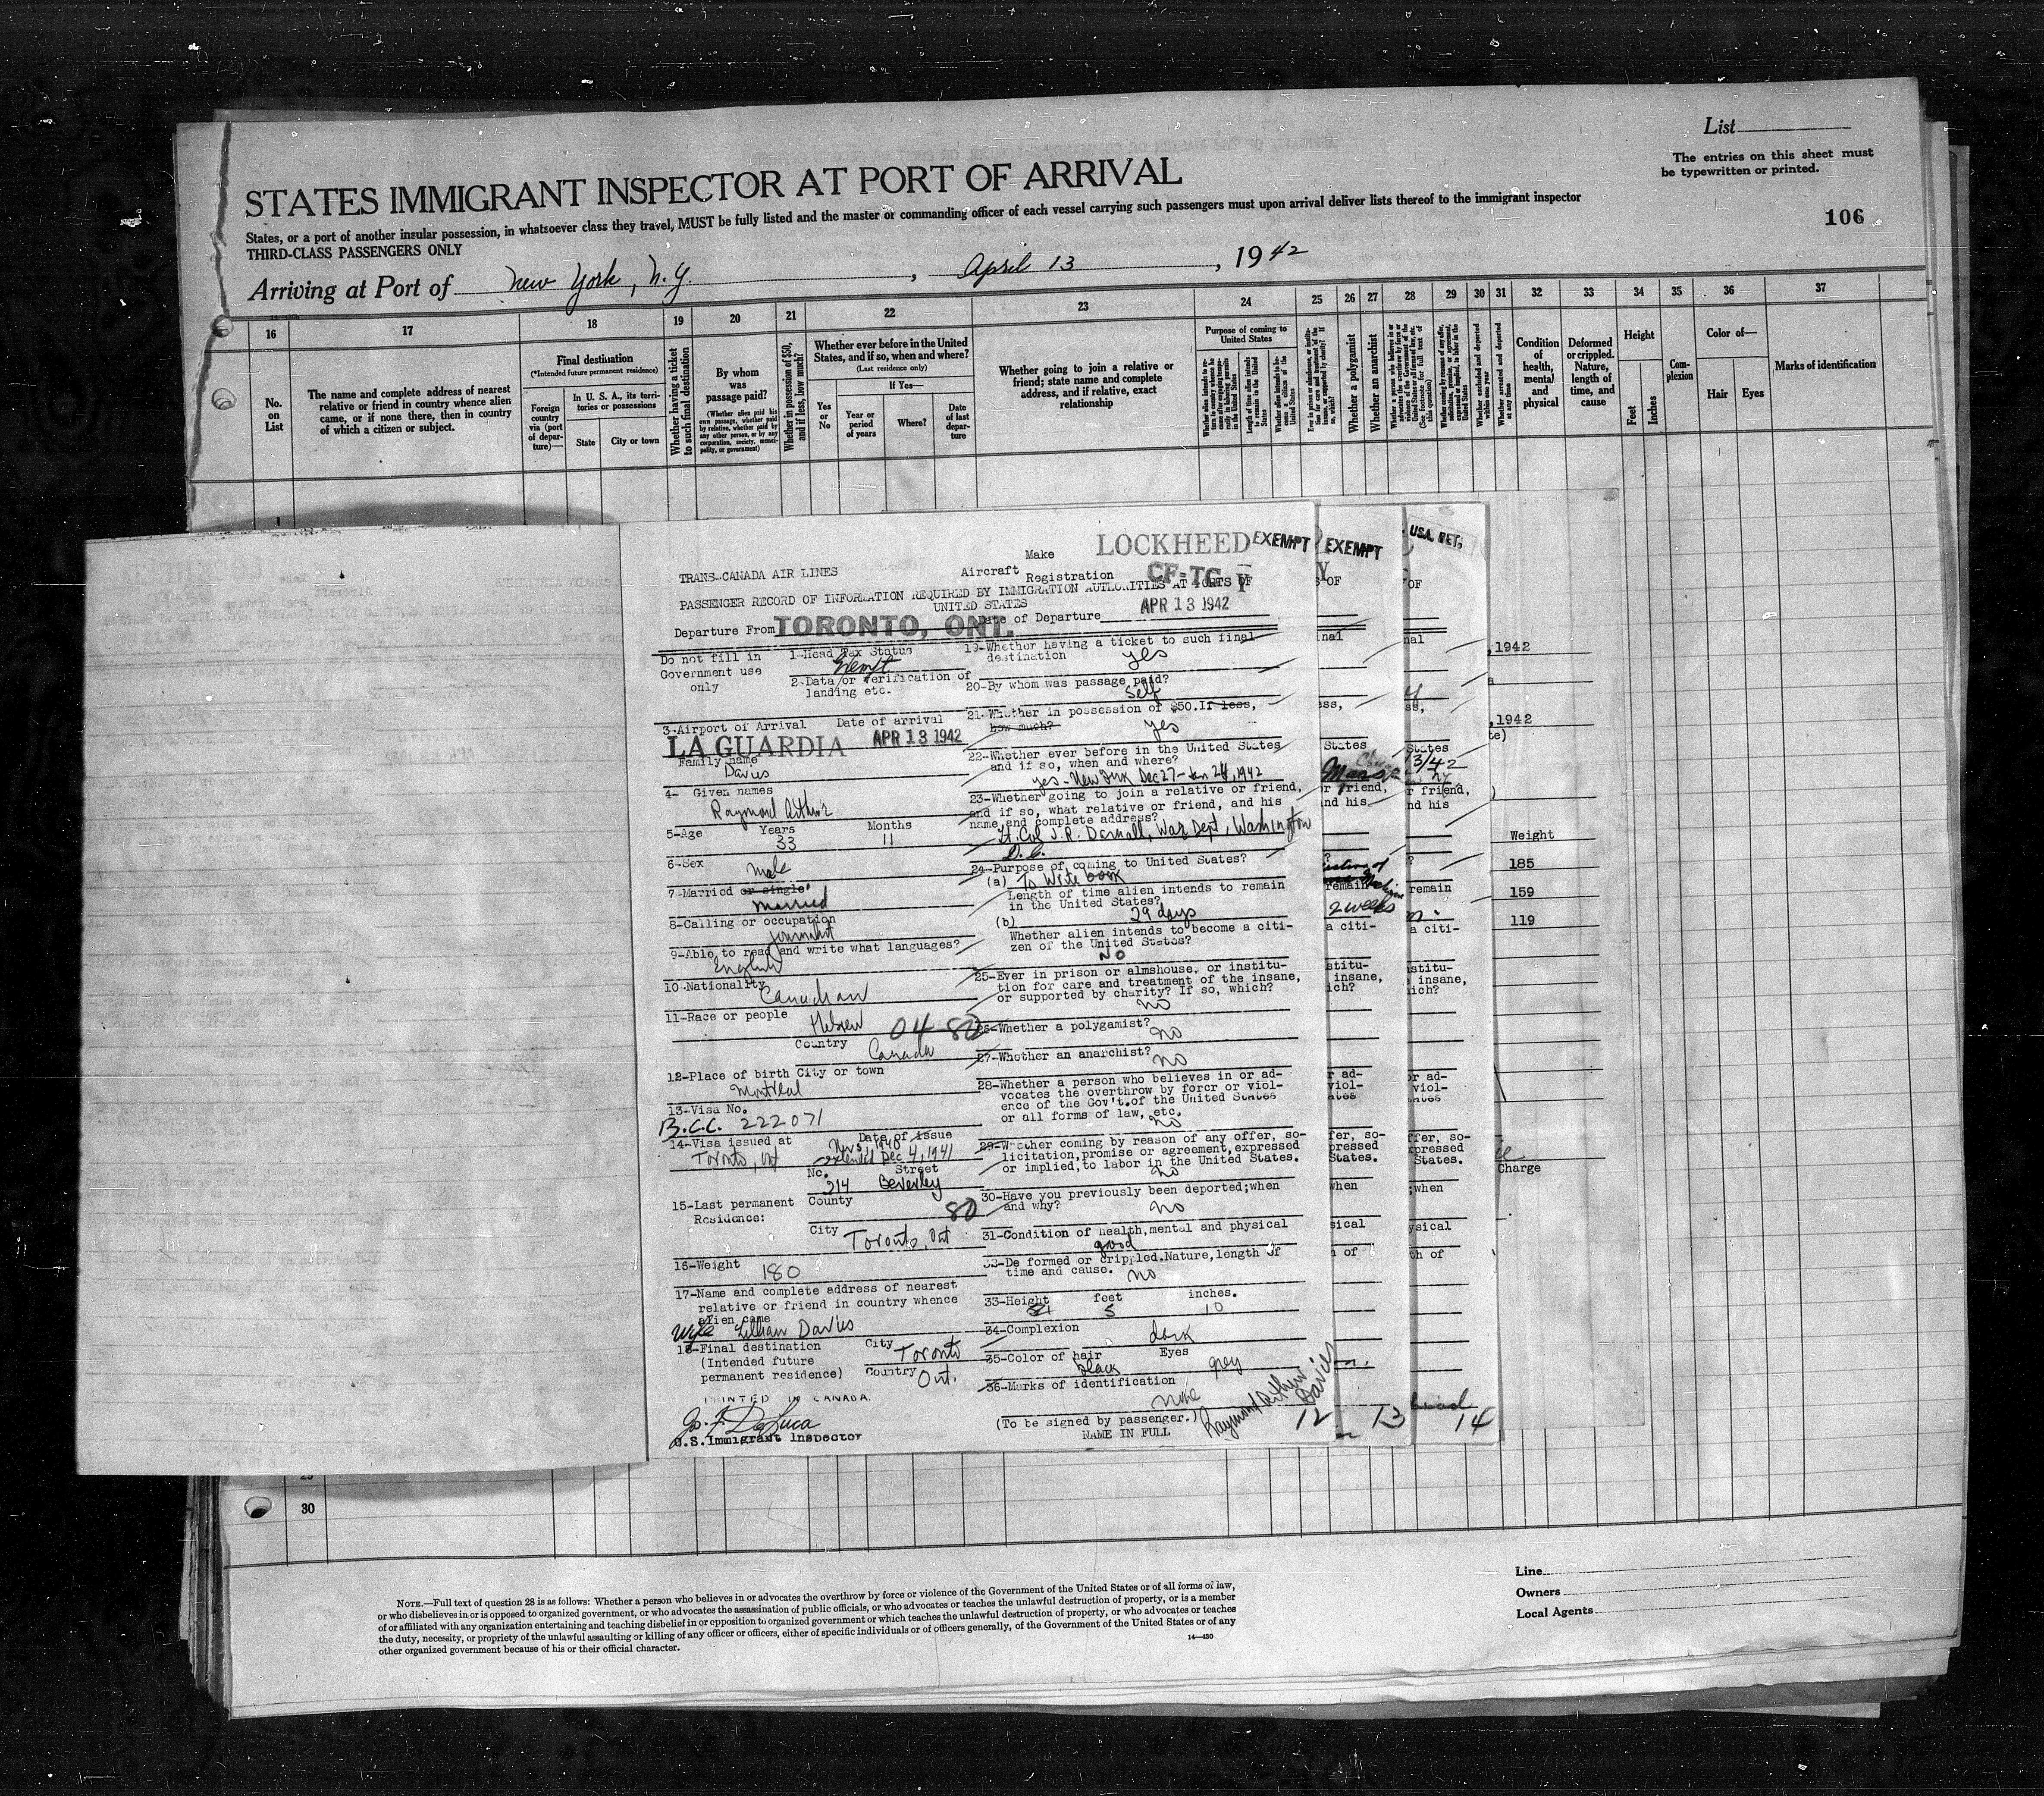 List
The entries on this sheet must
be typewritten or printed.
STATES IMMIGRANT INSPECTOR AT PORT OF ARRIVAL
106
States, or a port of another insular possession, in whatsoever class they travel, MUST be fully listed and the master or commanding officer of each vessel carrying such passengers must upon arrival deliver lists thereof to the immigrant inspector
THIRD-CLASS PASSENGERS ONLY
Arriving at Port of New York, N.Y. , April 13 , 1942
16 17 18 19 20 21 22 23 24 25 26 27 28 29 30 31 32 33 34 35 36 37
No. on List
The name and complete address of nearest
relative or friend in country whence alien
came, or if none there, then in country
of which a citizen or subject.
Final destination
(*Intended future permanent residence)
Foreign country via (port of departure)—
In U. S. A., its territories or possessions
State
City or town
Whether having a ticket to such final destination
By whom was passage paid?
(Whether alien paid his own passage, whether paid by relative, whether paid by any other person, or by any corporation, society, municipality, or government)
Whether in possession of $50, and if less, how much?
Whether ever before in the United
States, and if so, when and where?
(Last residence only)
Yes or No
If Yes—
Year or period of years
Where?
Date of last departure
Whether going to join a relative or
friend; state name and complete
address, and if relative, exact
relationship
Purpose of coming to
United States
Whether a polygamist
Whether an anarchist
Condition of health, mental and physical
Deformed or crippled. Nature, length of time, and cause
Height
Feet
Inches
Complexion
Color of—
Hair
Eyes
Marks of identification
1
TRANS-CANADA AIR LINES
Aircraft
Make LOCKHEED
Registration CF-TC
EXEMPT
EXEMPT
USA. RET.
PASSENGER RECORD OF INFORMATION REQUIRED BY IMMIGRATION AUTHORITIES AT PORTS OF
UNITED STATES
Departure From TORONTO, ONT.
Date of Departure APR 13 1942
Do not fill in
Government use
only
1-Head Tax Status
Exempt
2-Data or verification of
landing etc.
3-Airport of Arrival Date of arrival
LA GUARDIA APR 13 1942
Family name
Davies
4- Given names
Raymond Arthur
5-Age Years Months
33 11
6-Sex
Male
7-Married or single
Married
8-Calling or occupation
Journalist
9-Able to read and write what languages?
English
10-Nationality
Canadian
11-Race or people
Hebrew 04 80
Country
Canada
12-Place of birth City or town
Montreal
13-Visa No.
B.C.C. 222071
14-Visa issued at Date of issue
Toronto, Ont
extended Dec 4, 1941
No. Street
214 Beverley
15-Last permanent County
Residence:
80
City
Toronto, Ont
16-Weight
180
17-Name and complete address of nearest
relative or friend in country whence
alien came
Wife Lillian Davies
18-Final destination City Toronto
(Intended future
permanent residence) Country Ont.
PRINTED IN CANADA.
Jos. F. DeLuca
U.S.Immigrant Inspector
19-Whether having a ticket to such final
destination yes
20-By whom was passage paid?
Self
21-Whether in possession of $50.If less,
how much? yes
22-Whether ever before in the United States
and if so, when and where?
yes - New York Dec 27 - Jan 28, 1942
23-Whether going to join a relative or friend,
and if so, what relative or friend, and his
name and complete address?
Lt. Col J. R. Darnall, War Dept, Washington
D.C.
24-Purpose of coming to United States?
(a) To write book
Length of time alien intends to remain
in the United States?
(b) 29 days
Whether alien intends to become a citi-
zen of the United States?
NO
25-Ever in prison or almshouse, or institu-
tion for care and treatment of the insane,
or supported by charity? If so, which?
no
26-Whether a polygamist?
no
27-Whether an anarchist?
no
28-Whether a person who believes in or ad-
vocates the overthrow by forcr or viol-
ence of the Gov't.of the United States
or all forms of law, etc.
no
29-Whether coming by reason of any offer, so-
licitation,promise or agreement, expressed
or implied, to labor in the United States.
no
30-Have you previously been deported;when
and why?
no
31-Condition of health,mental and physical
good
32-De formed or crippled.Nature,length of
time and cause. no
33-Height feet inches.
5 10
34-Complexion
dark
35-Color of hair Eyes
black grey
36-Marks of identification
none
(To be signed by passenger.)
NAME IN FULL
Raymond Arthur Davies
12
13
14
2 weeks
13/42
, 1942
, 1942
Weight
185
159
119
Charge
30
NOTE.—Full text of question 28 is as follows: Whether a person who believes in or advocates the overthrow by force or violence of the Government of the United States or of all forms of law,
or who disbelieves in or is opposed to organized government, or who advocates the assassination of public officials, or who advocates or teaches the unlawful destruction of property, or is a member
of or affiliated with any organization entertaining and teaching disbelief in or opposition to organized government or which teaches the unlawful destruction of property, or who advocates or teaches
the duty, necessity, or propriety of the unlawful assaulting or killing of any officer or officers, either of specific individuals or of officers generally, of the Government of the United States or of any
other organized government because of his or their official character.
14—430
Line
Owners
Local Agents